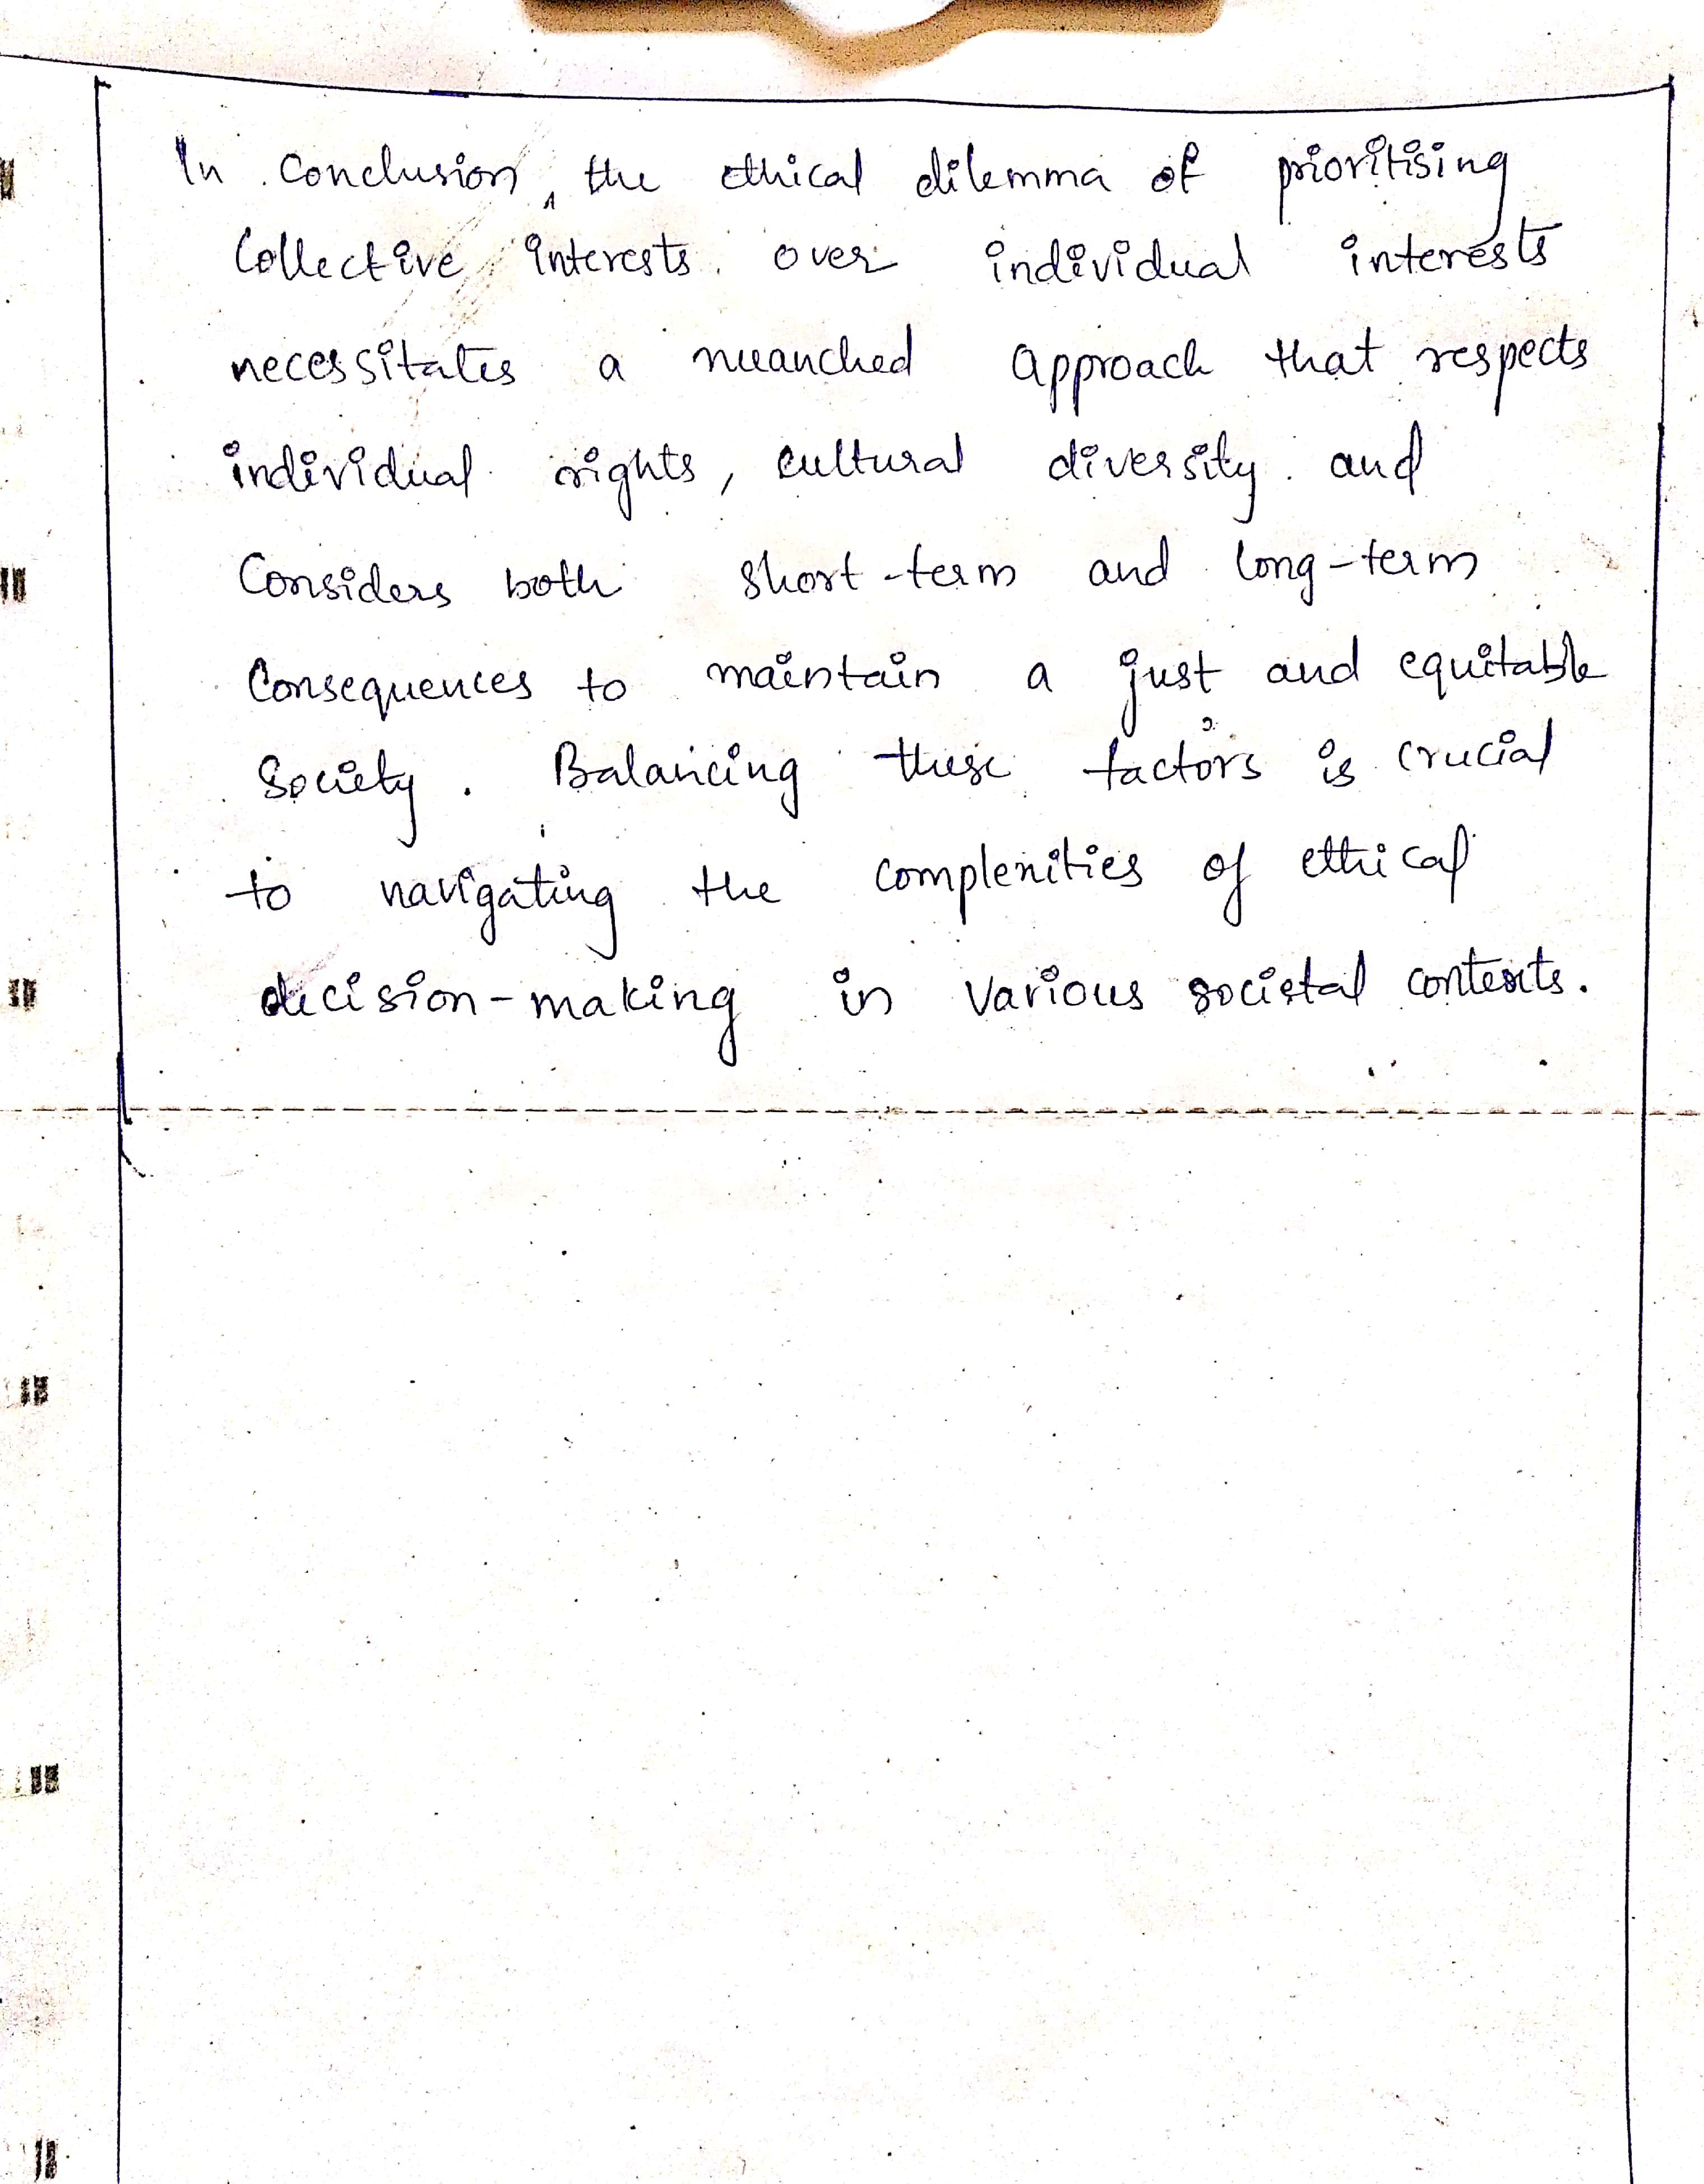 In conclusion, the ethical dilemma of prioritising
collective interests over individual interests
necessitates a nuanched approach that respects
individual rights, cultural diversity and
considers both short-term and long-term
consequences to maintain a just and equitable
society. Balancing these factors is crucial
to navigating the complexities of ethical
decision-making in various societal contexts.